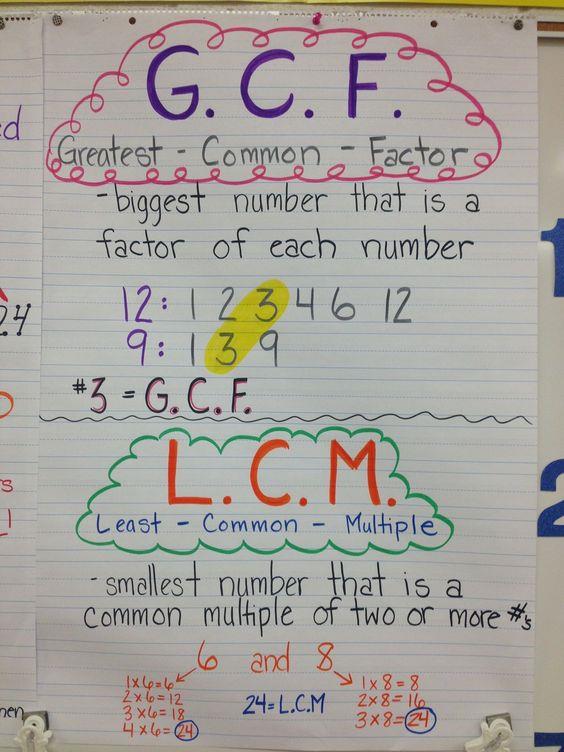 G. C. F.
Greatest - Common - Factor
-biggest number that is a
factor of each number
12: 1 2 3 4 6 12
9: 1 3 9
#3 = G.C.F.
L. C. M.
Least - Common - Multiple
-smallest number that is a
common multiple of two or more #'s
6 and 8
1x6=6
2x6=12
3x6=18
4x6=24
24=L.C.M
1x8=8
2x8=16
3x8=24
24
1
2